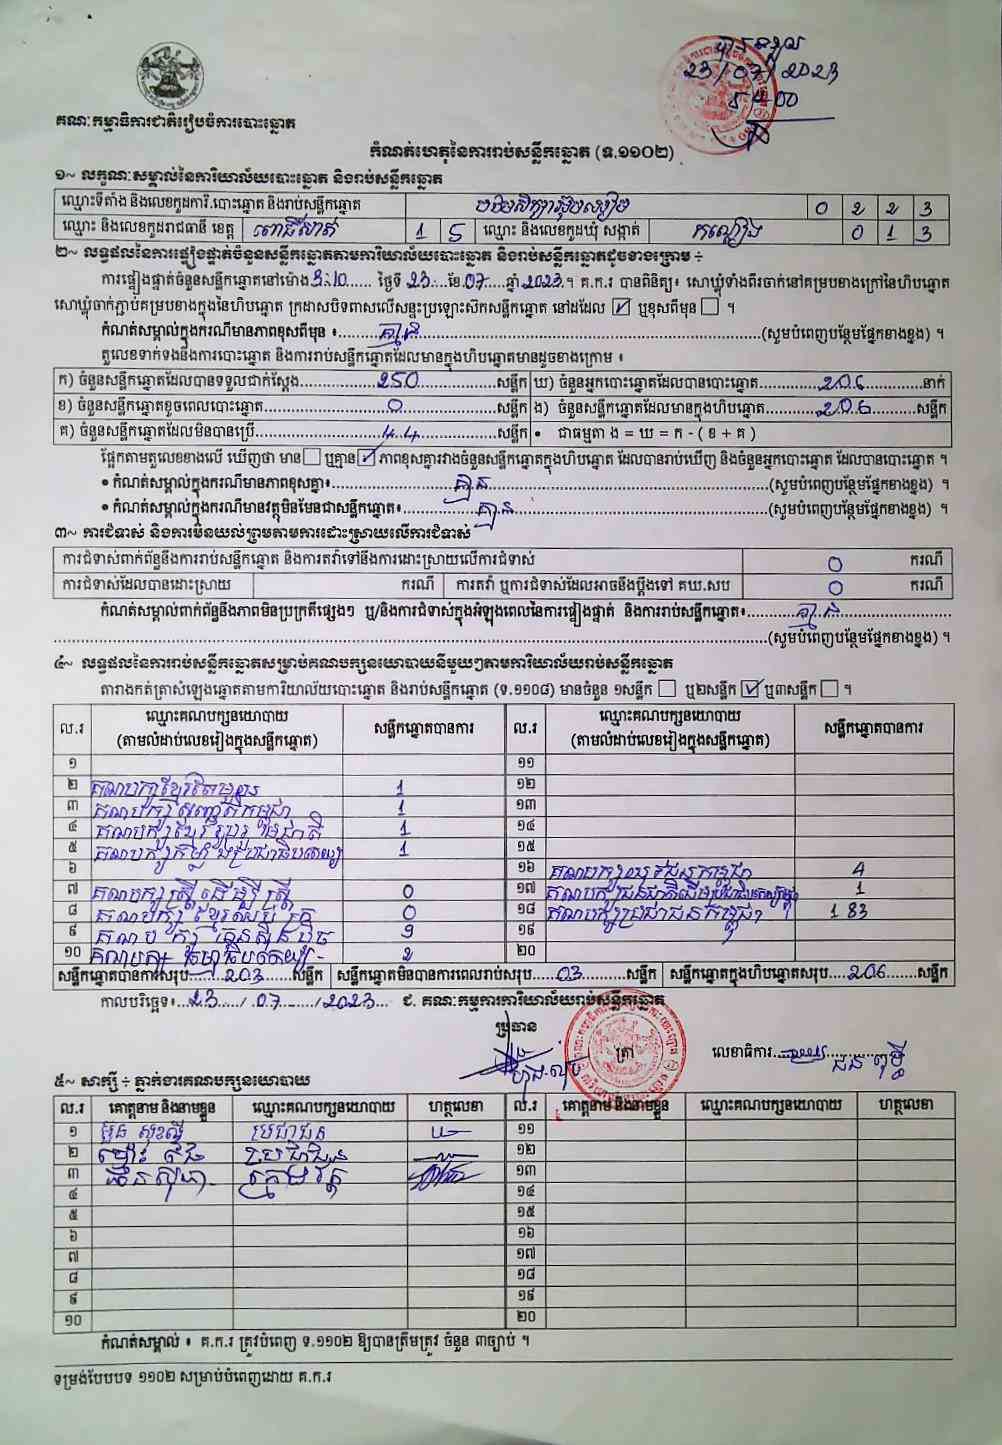 បានទទួល
23/07/2023
គណៈកម្មាធិការជាតិរៀបចំការបោះឆ្នោត
កំណត់ហេតុនៃការរាប់សន្លឹកឆ្នោត (ទ.១១០២)
១~ លក្ខណៈសម្គាល់នៃការិយាល័យបោះឆ្នោត និងរាប់សន្លឹកឆ្នោត
ឈ្មោះទីតាំង និងលេខកូដការិ.បោះឆ្នោត និងរាប់សន្លឹកឆ្នោត 0 2 2 3
ឈ្មោះ និងលេខកូដរាជធានី ខេត្ត ពោធិ៍សាត់ 1 5 ឈ្មោះ និងលេខកូដឃុំ សង្កាត់ 0 1 3
២~ លទ្ធផលនៃការផ្ទៀងផ្ទាត់ចំនួនសន្លឹកឆ្នោតតាមការិយាល័យបោះឆ្នោត និងរាប់សន្លឹកឆ្នោតដូចខាងក្រោម ÷
ការផ្ទៀងផ្ទាត់ចំនួនសន្លឹកឆ្នោតនៅម៉ោង 3:10 ថ្ងៃទី 23 ខែ 07 ឆ្នាំ 2023 ។ គ.ក.រ បានពិនិត្យ៖ សោឃ្លុំទាំងពីរចាក់នៅគម្របខាងក្រៅនៃហិបឆ្នោត
សោឃ្លុំចាក់ភ្ជាប់គម្របខាងក្នុងនៃហិបឆ្នោត ក្រដាសបិទពាសលើសន្ទះប្រឡោះស៊កសន្លឹកឆ្នោត នៅដដែល ☑ ឬខុសពីមុន ☐ ។
កំណត់សម្គាល់ក្នុងករណីមានភាពខុសពីមុន ៖ គ្មាន (សូមបំពេញបន្ថែមផ្នែកខាងខ្នង) ។
តួលេខទាក់ទងនឹងការបោះឆ្នោត និងការរាប់សន្លឹកឆ្នោតដែលមានក្នុងហិបឆ្នោតមានដូចខាងក្រោម ៖
ក) ចំនួនសន្លឹកឆ្នោតដែលបានទទួលជាក់ស្តែង 250 សន្លឹក ឃ) ចំនួនអ្នកបោះឆ្នោតដែលបានបោះឆ្នោត 206 នាក់
ខ) ចំនួនសន្លឹកឆ្នោតខូចពេលបោះឆ្នោត 0 សន្លឹក ង) ចំនួនសន្លឹកឆ្នោតដែលមានក្នុងហិបឆ្នោត 206 សន្លឹក
គ) ចំនួនសន្លឹកឆ្នោតដែលមិនបានប្រើ 44 សន្លឹក • ជាធម្មតា ង = ឃ = ក - ( ខ + គ )
ផ្អែកតាមតួលេខខាងលើ ឃើញថា មាន ☐ ឬគ្មាន ☑ ភាពខុសគ្នារវាងចំនួនសន្លឹកឆ្នោតក្នុងហិបឆ្នោត ដែលបានរាប់ឃើញ និងចំនួនអ្នកបោះឆ្នោត ដែលបានបោះឆ្នោត ។
• កំណត់សម្គាល់ក្នុងករណីមានភាពខុសគ្នា៖ គ្មាន (សូមបំពេញបន្ថែមផ្នែកខាងខ្នង) ។
• កំណត់សម្គាល់ក្នុងករណីមានវត្ថុមិនមែនជាសន្លឹកឆ្នោត៖ គ្មាន (សូមបំពេញបន្ថែមផ្នែកខាងខ្នង) ។
៣~ ការជំទាស់ និងការមិនយល់ព្រមតាមការដោះស្រាយលើការជំទាស់
ការជំទាស់ពាក់ព័ន្ធនឹងការរាប់សន្លឹកឆ្នោត និងការតវ៉ាទៅនឹងការដោះស្រាយលើការជំទាស់ 0 ករណី
ការជំទាស់ដែលបានដោះស្រាយ ករណី ការតវ៉ា ឬការជំទាស់ដែលអាចនឹងប្តឹងទៅ គឃ.សប 0 ករណី
កំណត់សម្គាល់ពាក់ព័ន្ធនឹងភាពមិនប្រក្រតីផ្សេងៗ ឬ/និងការជំទាស់ក្នុងអំឡុងពេលនៃការផ្ទៀងផ្ទាត់ និងការរាប់សន្លឹកឆ្នោត៖ គ្មាន
(សូមបំពេញបន្ថែមផ្នែកខាងខ្នង) ។
៤~ លទ្ធផលនៃការរាប់សន្លឹកឆ្នោតសម្រាប់គណបក្សនយោបាយនីមួយៗតាមការិយាល័យរាប់សន្លឹកឆ្នោត
តារាងកត់ត្រាសំឡេងឆ្នោតតាមការិយាល័យបោះឆ្នោត និងរាប់សន្លឹកឆ្នោត (ទ.១១០៨) មានចំនួន ១សន្លឹក ☐ ឬ២សន្លឹក ☑ ឬ៣សន្លឹក ☐ ។
ល.រ ឈ្មោះគណបក្សនយោបាយ (តាមលំដាប់លេខរៀងក្នុងសន្លឹកឆ្នោត) សន្លឹកឆ្នោតបានការ ល.រ ឈ្មោះគណបក្សនយោបាយ (តាមលំដាប់លេខរៀងក្នុងសន្លឹកឆ្នោត) សន្លឹកឆ្នោតបានការ
១ ១១
២ គណបក្សខ្មែរតែមួយ 1 ១២
៣ 1 ១៣
៤ គណបក្សខ្មែររួបរួមជាតិ 1 ១៤
៥ គណបក្សកម្លាំងប្រជាធិបតេយ្យ 1 ១៥
៦ ១៦ គណបក្សយុវជនកម្ពុជា 4
៧ គណបក្សស្ត្រីដើម្បីស្ត្រី 0 ១៧ 1
៨ 0 ១៨ គណបក្សប្រជាជនកម្ពុជា 183
៩ គណបក្សហ្វ៊ុនស៊ិនប៉ិច 9 ១៩
១០ 2 ២០
សន្លឹកឆ្នោតបានការសរុប 203 សន្លឹក សន្លឹកឆ្នោតមិនបានការពេលរាប់សរុប 03 សន្លឹក សន្លឹកឆ្នោតក្នុងហិបឆ្នោតសរុប 206 សន្លឹក
កាលបរិច្ឆេទ៖ 23 / 07 / 2023 ជ. គណៈកម្មការការិយាល័យរាប់សន្លឹកឆ្នោត
ប្រធាន
ត្រា លេខាធិការ
៥~ សាក្សី ÷ ភ្នាក់ងារគណបក្សនយោបាយ
ល.រ គោត្តនាម និងនាមខ្លួន ឈ្មោះគណបក្សនយោបាយ ហត្ថលេខា ល.រ គោត្តនាម និងនាមខ្លួន ឈ្មោះគណបក្សនយោបាយ ហត្ថលេខា
១ ប្រជាជន ១១
២ ១២
៣ ១៣
៤ ១៤
៥ ១៥
៦ ១៦
៧ ១៧
៨ ១៨
៩ ១៩
១០ ២០
កំណត់សម្គាល់ ៖ គ.ក.រ ត្រូវបំពេញ ទ.១១០២ ឱ្យបានត្រឹមត្រូវ ចំនួន ៣ច្បាប់ ។
ទម្រង់បែបបទ ១១០២ សម្រាប់បំពេញដោយ គ.ក.រ